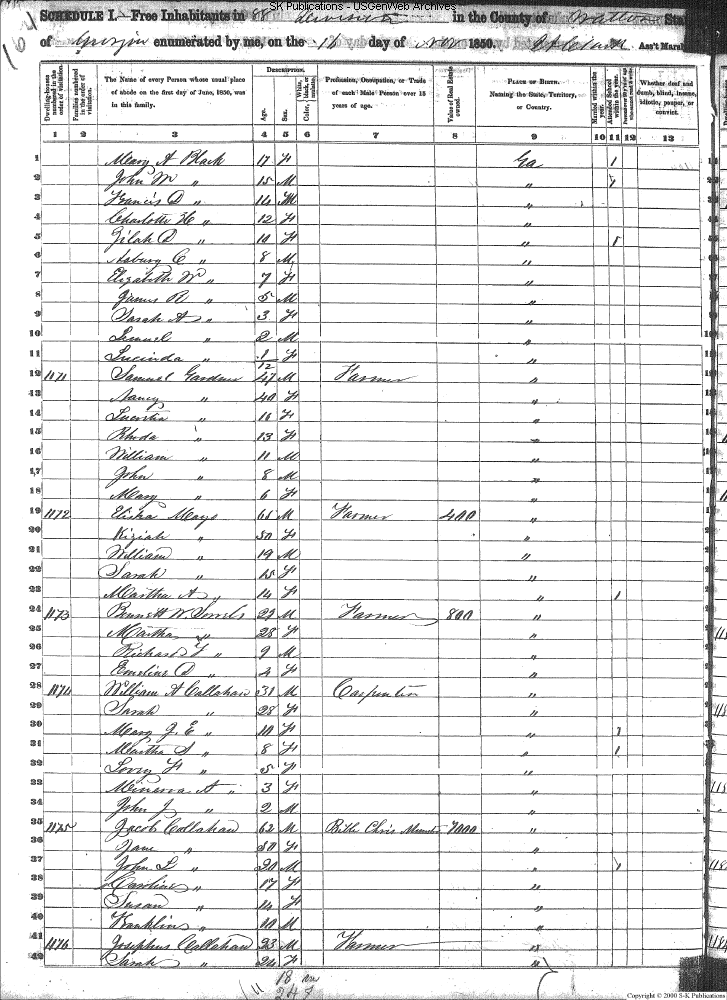 SK Publications - USGenWeb Archives
SCHEDULE I.—Free Inhabitants in 88 Division in the County of Walton State
of Georgia enumerated by me, on the 16 day of Nov 1850. Ass't Marshal
Dwelling-houses numbered in the order of visitation.
Families numbered in the order of visitation.
The Name of every Person whose usual place of abode on the first day of June, 1850, was in this family.
DESCRIPTION.
Age.
Sex.
Color, White, black, or mulatto.
Profession, Occupation, or Trade of each Male Person over 15 years of age.
Value of Real Estate owned.
PLACE OF BIRTH. Naming the State, Territory, or Country.
Married within the year.
Attended School within the year.
Whether deaf and dumb, blind, insane, idiotic, pauper, or convict.
1 2 3 4 5 6 7 8 9 10 11 12 13
1 Meary A Black 17 F Ga 1
2 John M " 15 M " 1
3 Francis D " 14 M "
4 Charlotte H " 12 F "
5 Zilah D " 10 F " 1
6 Asbury C " 8 M "
7 Elizabeth W " 7 F "
8 James R " 5 M "
9 Sarah A " 3 F "
10 Lemuel " 2 M "
11 Lucinda " 1/12 F "
12 1171 Samuel Gardner 47 M Farmer "
13 Nancy " 40 F "
14 " 16 F "
15 Rhoda " 13 F "
16 William " 11 M "
17 John " 8 M "
18 Mary " 6 F "
19 1172 Elisha Mays 61 M Farmer 400 "
20 Kiziah " 50 F "
21 William " 19 M "
22 Sarah " 15 F "
23 Martha A " 14 F " 1
24 1173 Bennett W Sorrels 29 M Farmer 800 "
25 Martha " 28 F "
26 Richard F " 9 M "
27 Emeline D " 4 F "
28 1174 William A Callahan 31 M Carpenter "
29 Sarah " 28 F "
30 Mary J. E " 10 F " 1
31 Martha S " 8 F " 1
32 Lovey F " 5 F "
33 Minerva A " 3 F "
34 John J " 2 M "
35 1175 Jacob Callahan 62 M Bible Chris Minister 7000 "
36 Jane " 50 F "
37 John L " 20 M " 1
38 Caroline " 17 F "
39 Susan " 14 F "
40 Franklin " 10 M "
41 1176 Josephus Callahan 23 M Farmer "
42 Sarah " 24 F "
18 m
24 f
Copyright © 2000 S-K Publications